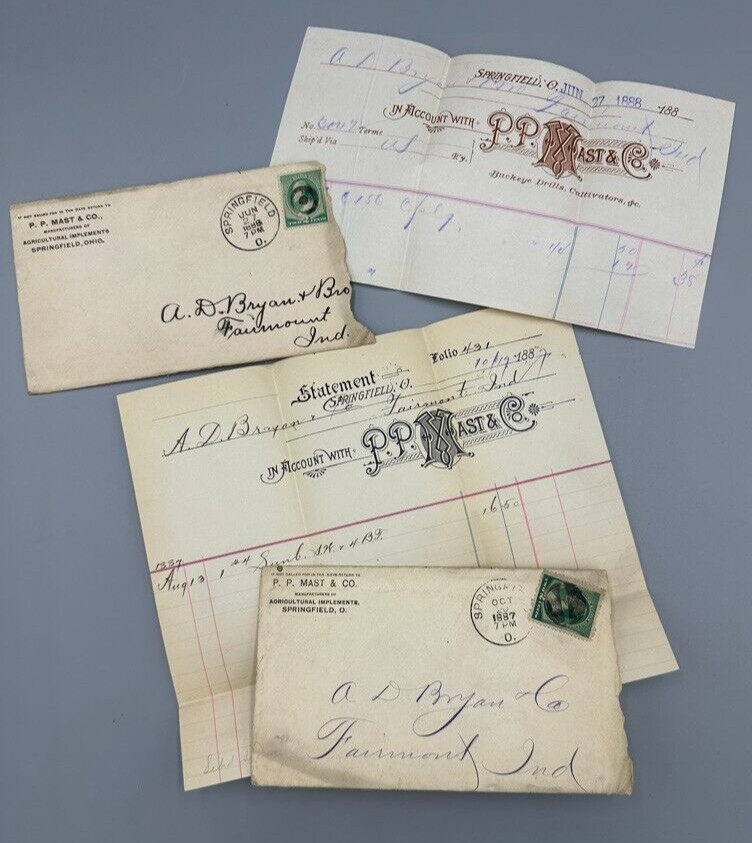 SPRINGFIELD, O. JUN 27 1888 188
A D Bry
Fairmount Ind
IN ACCOUNT WITH P.P. MAST & CO.
No. Terms
Ship'd Via Ry.
Buckeye Drills, Cultivators, &c.
35
IF NOT CALLED FOR IN TEN DAYS RETURN TO
P. P. MAST & CO.,
MANUFACTURERS OF
AGRICULTURAL IMPLEMENTS
SPRINGFIELD, OHIO.
SPRINGFIELD
JUN
27
1888
7 PM
O.
A. D. Bryan & Bro
Fairmount
Ind.
Statement Folio 431
SPRINGFIELD, O. 10/19 1887
A. D. Bryan & Fairmont Ind
IN ACCOUNT WITH P.P. MAST & CO.
16 50
1887
Aug 13 1
IF NOT CALLED FOR IN TEN DAYS RETURN TO
P. P. MAST & CO.
MANUFACTURERS OF
AGRICULTURAL IMPLEMENTS,
SPRINGFIELD, O.
SPRINGFI
OCT
1887
7 PM
O.
A D Bryan & Co
Fairmont Ind